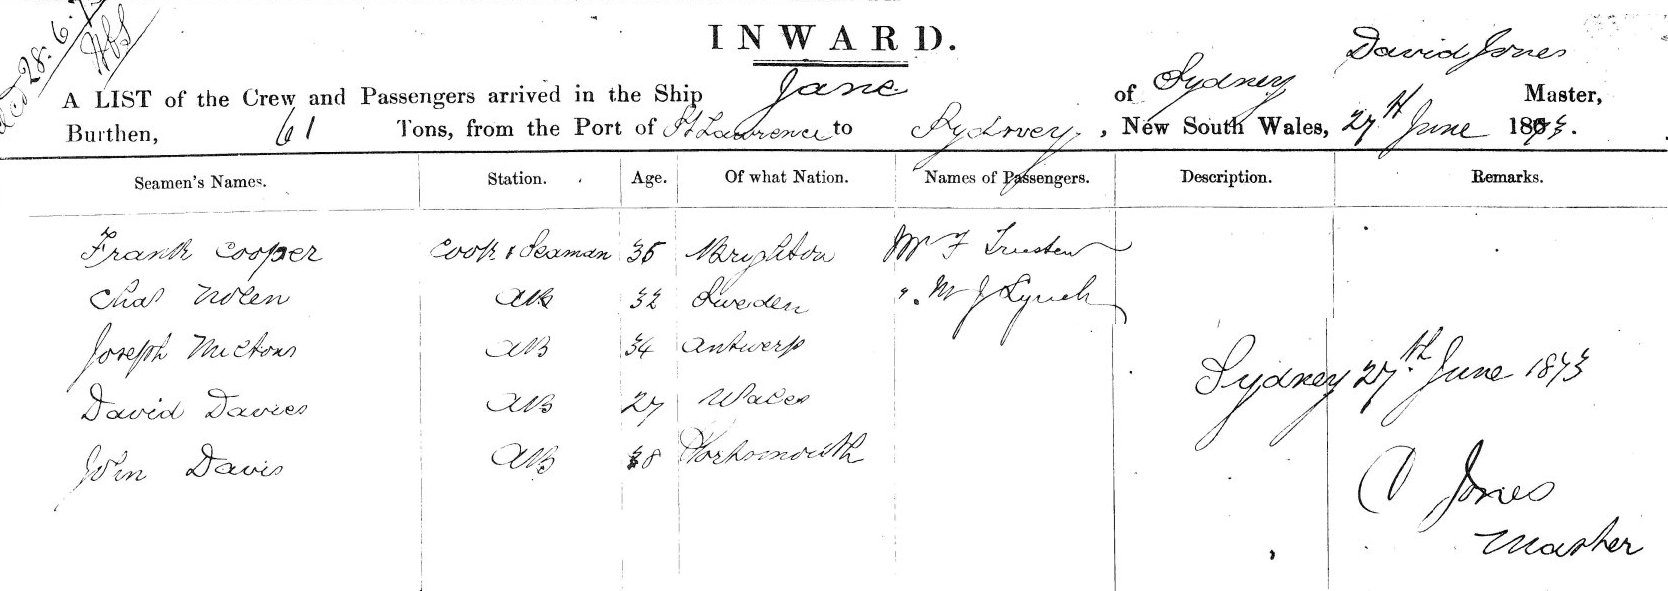 28.6.7
INWARD.
David Jones
A LIST of the Crew and Passengers arrived in the Ship Jane of Sydney Master,
Burthen, 61 Tons, from the Port of St Lawrence to Sydney, New South Wales, 27th June 1873.
Seamen's Names. Station. Age. Of what Nation. Names of Passengers. Description. Remarks.
Frank Cooper Cook & Seaman 35 Bryghton Mr F
Chas Nolen AB 32 Sweden " Mr J Lynch
Joseph AB 34 Antwerp
Sydney 27th June 1873
David Davies AB 27 Wales
John Davis AB 38 Portsmouth
D Jones
Master